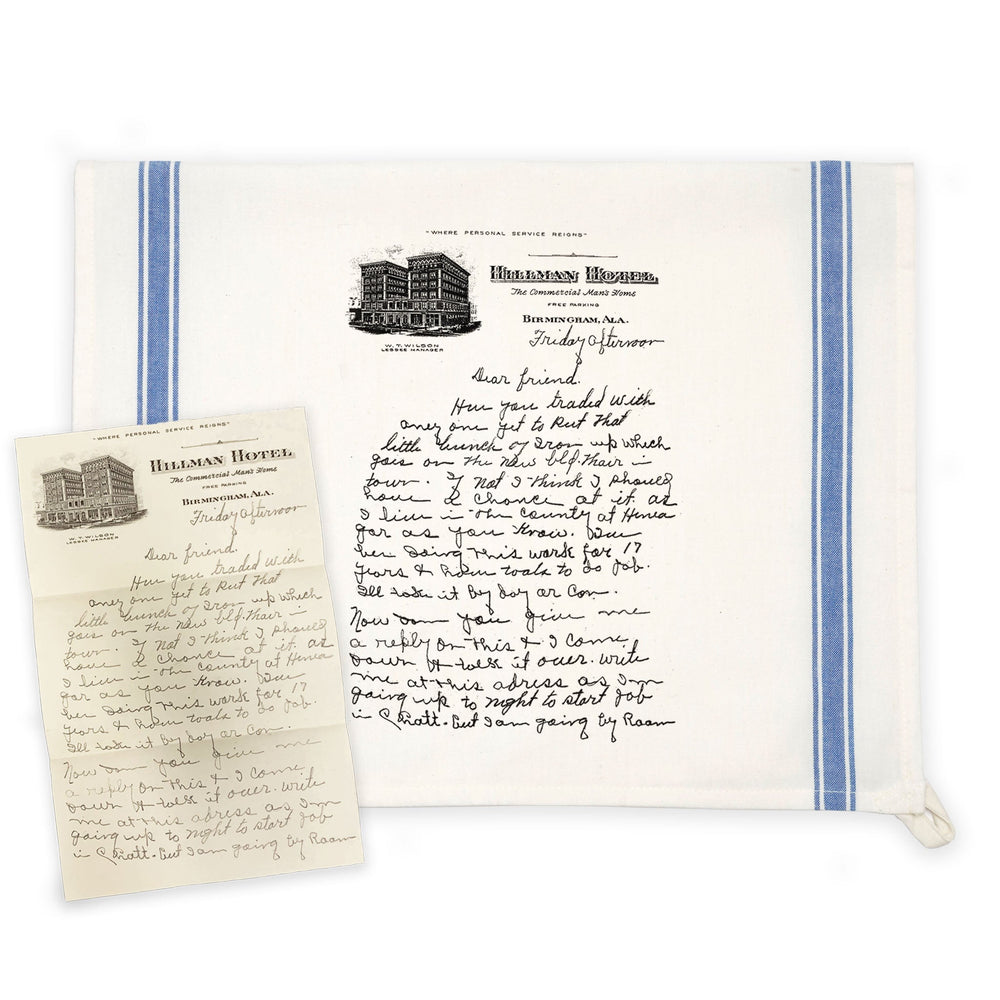 "WHERE PERSONAL SERVICE REIGNS"
HILLMAN HOTEL
The Commercial Man's Home
FREE PARKING
BIRMINGHAM, ALA.
W. T. WILSON
LESSEE MANAGER
Friday afternoon
Dear friend.
Hav you traded with
aney one yet to Put That
little bunch of Iron up which
goes on the new bld. thair in
town. If not I think I should
have a chance at it. as
I live in the County at
far as you Know.
ben Doing This work for 17
years & hav to do Job.
Ill take it by day or Con.
Now you give me
a reply on This & I come
Down & talk it over. write
me at this adress as I'm
going up to night to start Job
in Pratt. but I am going by Raom
"WHERE PERSONAL SERVICE REIGNS"
HILLMAN HOTEL
The Commercial Man's Home
FREE PARKING
BIRMINGHAM, ALA.
W. T. WILSON
LESSEE MANAGER
Friday afternoon
Dear friend.
Hav you traded with
aney one yet to Put That
little bunch of Iron up which
goes on the new bld. thair in
town. If not I think I should
have a chance at it. as
I live in the County at
far as you Know.
ben Doing This work for 17
years & hav to do Job.
Ill take it by day or Con.
Now you give me
a reply on This & I come
Down & talk it over. write
me at this adress as I'm
going up to night to start Job
in Pratt. but I am going by Raom